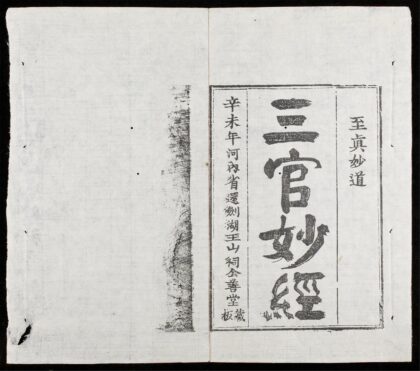 至眞妙道
三官妙經
辛未年河內省還劍湖玉山祠仝善堂藏板